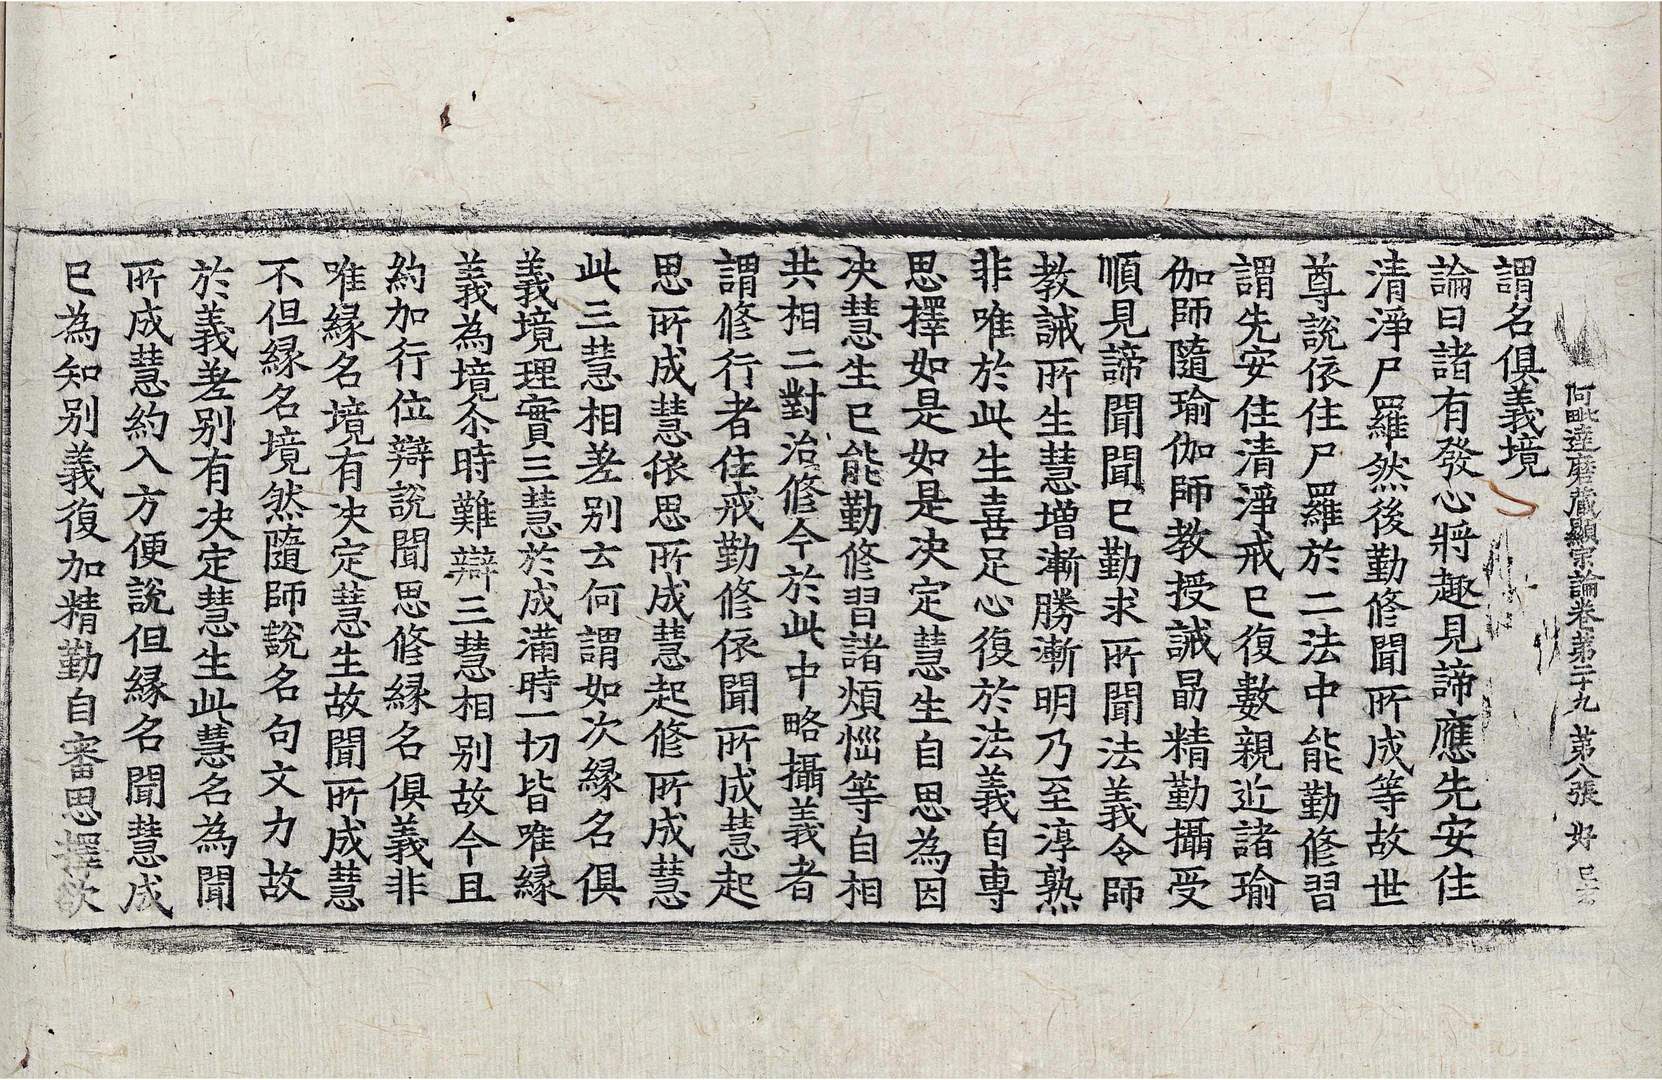 阿毗達磨藏顯宗論卷第二十九 第八張 好
謂名俱義境
論曰諸有發心將趣見諦應先安住
清淨尸羅然後勤修聞所成等故世
尊說依住尸羅於二法中能勤修習
謂先安住清淨戒已復數親近諸瑜
伽師隨瑜伽師教授誡勗精勤攝受
順見諦聞聞已勤求所聞法義令師
教誡所生慧增漸勝漸明乃至淳熟
非唯於此生喜足心復於法義自專
思擇如是如是決定慧生自思為因
決慧生已能勤修習諸煩惱等自相
共相二對治修今於此中略攝義者
謂修行者住戒勤修依聞所成慧起
思所成慧依思所成慧起修所成慧
此三慧相差別云何謂如次緣名俱
義境理實三慧於成滿時一切皆唯緣
義為境尒時難辯三慧相別故今且
約加行位辯說聞思修緣名俱義非
唯緣名境有決定慧生故聞所成慧
不但緣名境然隨師說名句文力故
於義差別有決定慧生此慧名為聞
所成慧約入方便說但緣名聞慧成
已為知別義復加精勤自審思擇欲